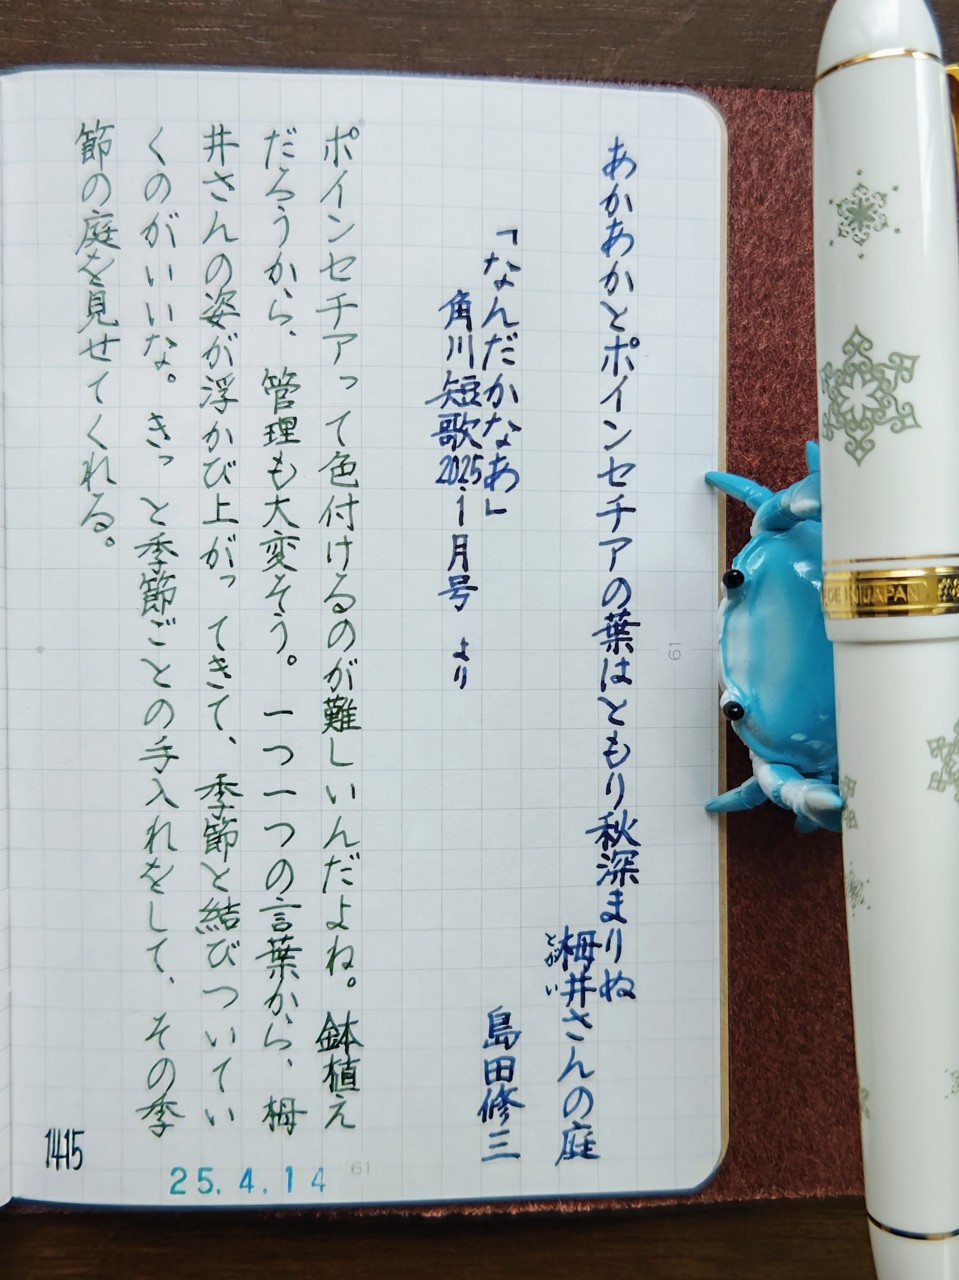 あかあかとポインセチアの葉はともり秋深まりぬ
栂井さんの庭
とがい
島田修三
「なんだかなあ」
角川短歌2025.1月号 より
ポインセチアって色付けるのが難しいんだよね。鉢植え
だろうから、管理も大変そう。一つ一つの言葉から、栂
井さんの姿が浮かび上がってきて、季節と結びついてい
くのがいいな。きっと季節ごとの手入れをして、その季
節の庭を見せてくれる。
1415
25.4.14
61
61
JAPAN